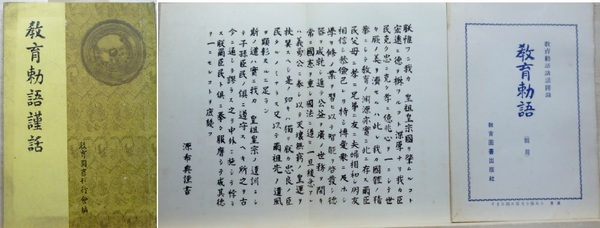 教育勅語謹話
教育圖書刊行會編
朕惟フニ我カ 皇祖皇宗國ヲ肇ムルコト
宏遠ニ德ヲ樹ツルコト深厚ナリ我カ臣
民克ク忠ニ克ク孝ニ億兆心ヲ一ニシテ世
々厥ノ美ヲ濟セルハ此レ我カ國體ノ精
華ニシテ教育ノ淵源亦實ニ此ニ存ス爾臣
民父母ニ孝ニ兄弟ニ友ニ夫婦相和シ朋友
相信シ恭儉己レヲ持シ博愛衆ニ及ホシ
學ヲ修メ業ヲ習ヒ以テ智能ヲ啓發シ德
器ヲ成就シ進テ公益ヲ廣メ世務ヲ開キ
常ニ國憲ヲ重シ國法ニ遵ヒ一旦緩急アレ
ハ義勇公ニ奉シ以テ天壤無窮ノ皇運ヲ
扶翼スヘシ是ノ如キハ獨リ朕カ忠良ノ臣
民タルノミナラス又以テ爾祖先ノ遺風
ヲ顯彰スルニ足ラン
斯ノ道ハ實ニ我カ 皇祖皇宗ノ遺訓ニシ
テ子孫臣民ノ俱ニ遵守スヘキ所之ヲ古
今ニ通シテ謬ラス之ヲ中外ニ施シテ悖ラ
ス朕爾臣民ト俱ニ拳々服膺シテ咸其德
ヲ一ニセンコトヲ庶幾フ
源布典謹書
教育勅語
教育圖書出版社